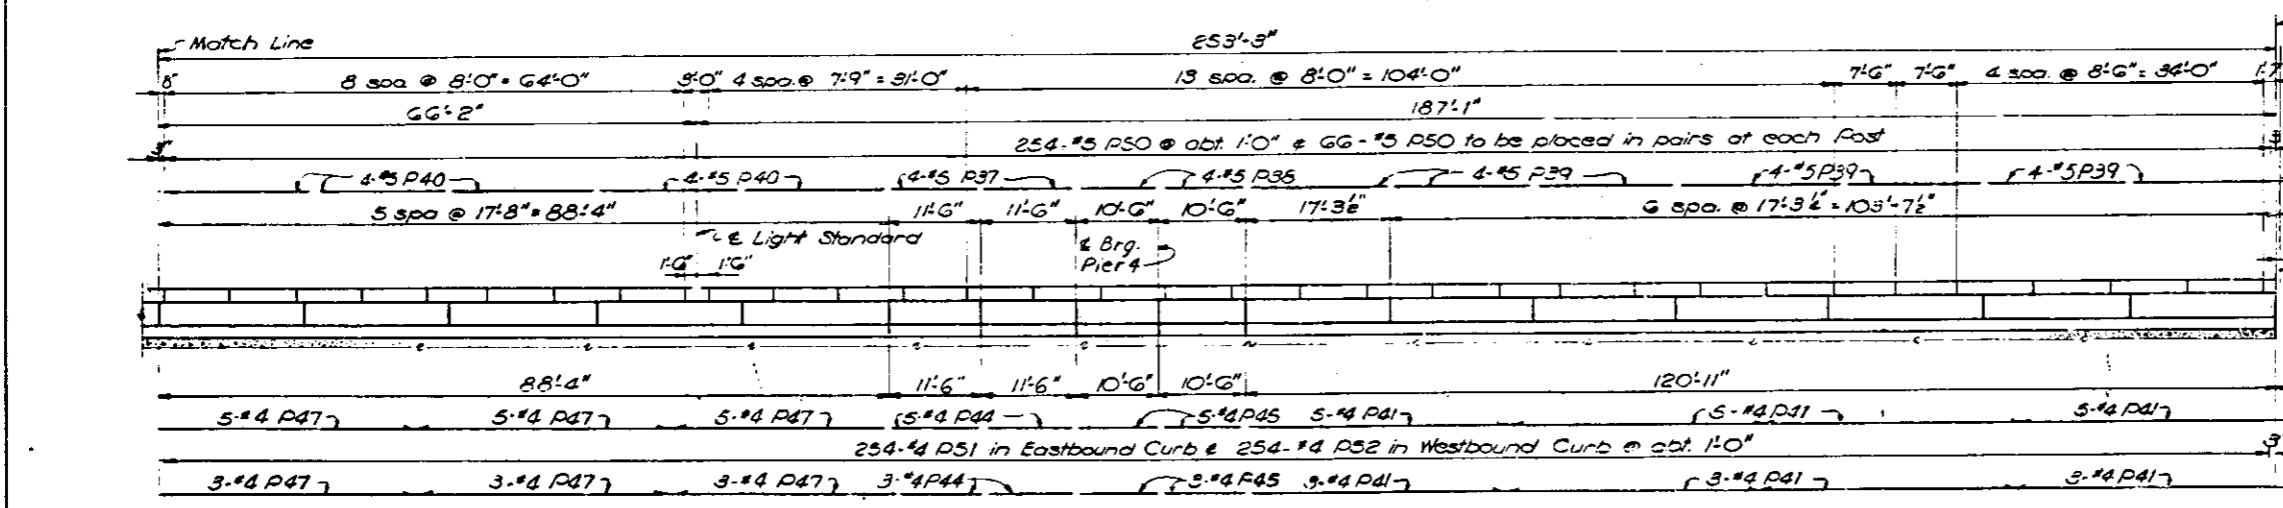 Match Line
253'-3"
8" 8 spa @ 8'-0" = 64'-0" 3'-0" 4 spa. @ 7'-9" = 31'-0" 13 spa. @ 8'-0" = 104'-0" 7'-6" 7'-6" 4 spa. @ 8'-6" = 34'-0" 1'-7
66'-2" 187'-1"
3" 254-#5 P50 @ abt. 1'-0" & 66-#5 P50 to be placed in pairs at each Post 3
4-#5 P40 4-#5 P40 4-#5 P37 4-#5 P38 4-#5 P39 4-#5P39 4-#5P39
5 spa @ 17'-8" = 88'-4" 11'-6" 11'-6" 10'-6" 10'-6" 17'-3½" 6 spa. @ 17'-3¼" = 103'-7½"
℄ Light Standard ℄ Brg.
1'-6" 1'-6" Pier 4
88'-4" 11'-6" 11'-6" 10'-6" 10'-6" 120'-11"
5-#4 P47 5-#4 P47 5-#4 P47 5-#4 P44 5-#4P45 5-#4 P41 5-#4 P41 5-#4 P41
254-#4 P51 in Eastbound Curb & 254-#4 P52 in Westbound Curb @ abt. 1'-0" 3
3-#4 P47 3-#4 P47 3-#4 P47 3-#4P44 3-#4 P45 3-#4 P41 3-#4 P41 3-#4 P41